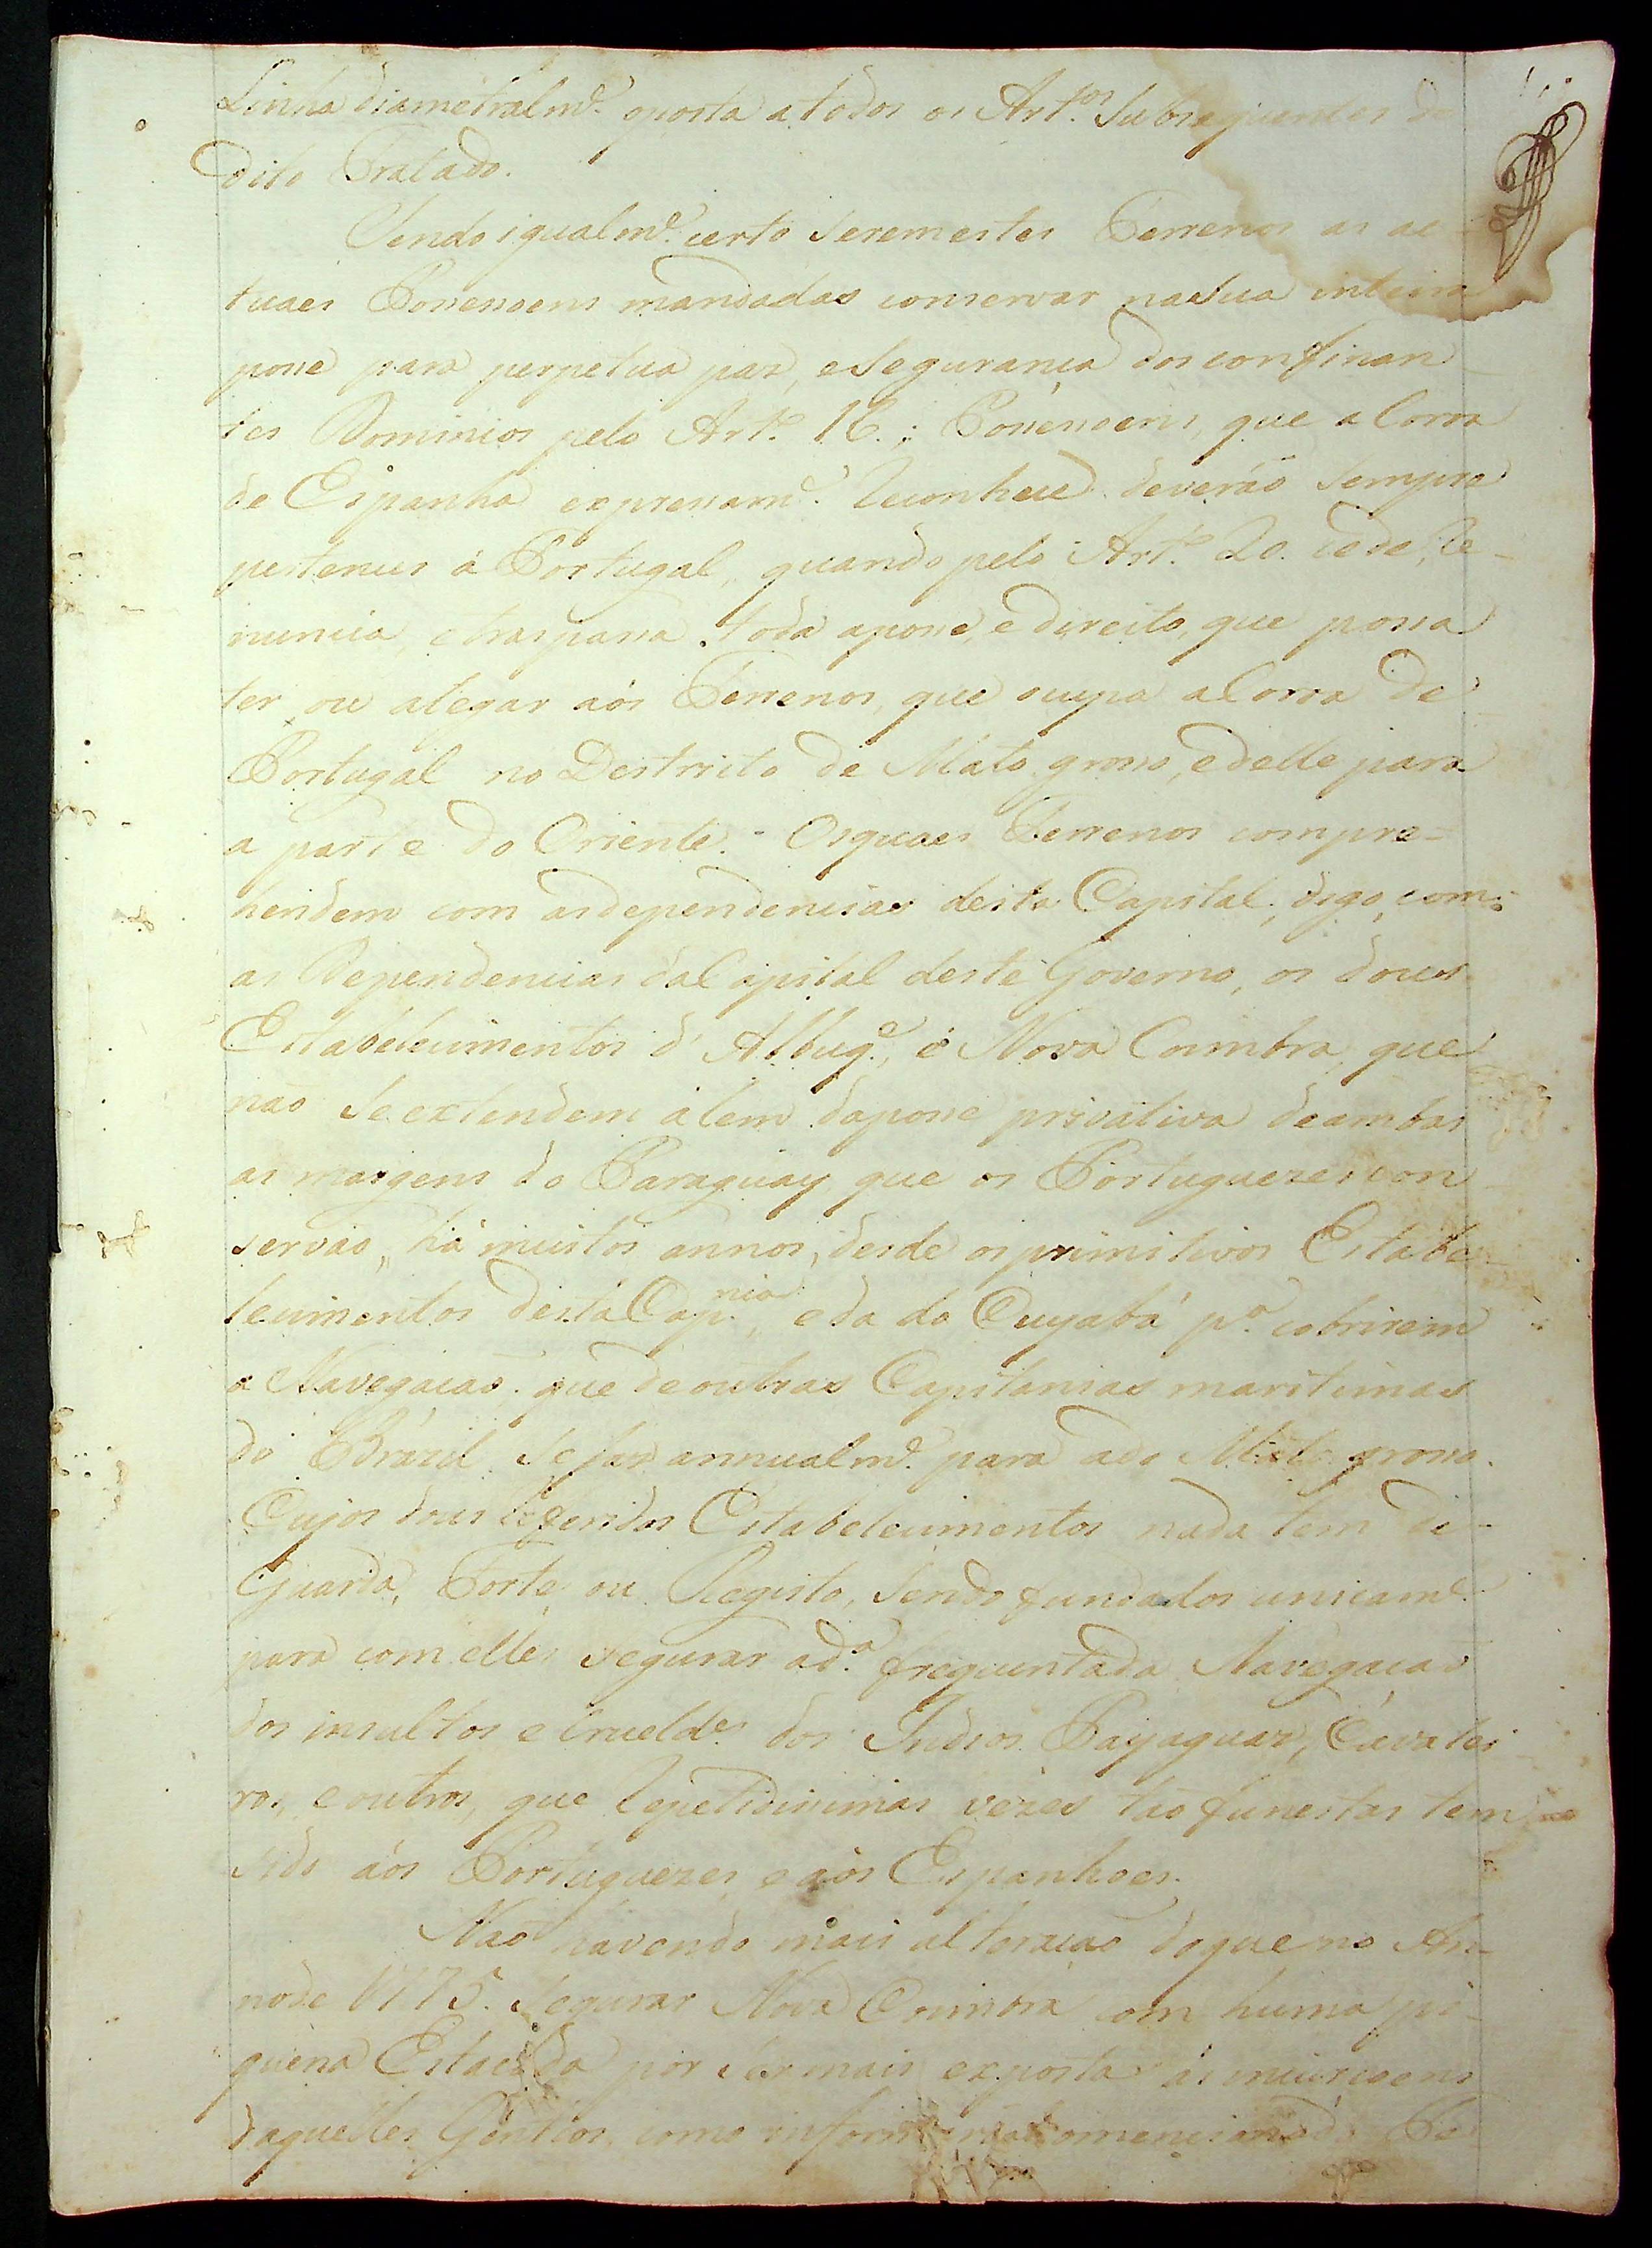 Linha diametralm.e oposta a todos os Art.os Subsequentes do
dito Tratado.
Sendo igualm.e certo serem estes Terrenos as ac-
tuaes Possessoens mandadas conservar na sua inteira
posse para perpetua paz, e Segurança dos confinan-
tes Dominios pelo Art.o 16.; Possessoens, que a Coroa
de Espanha expressam.e Reconhece deverão Sempre
pertencer á Portugal, quando pelo Art.o 20. cede, Re-
nuncia, e traspassa toda a posse, e direito, que possa
ter ou alegar aós Terrenos, que ocupa a Coroa de
Portugal no Destricto de Mato grosso, e delle para
a parte do Oriente. Os quaes Terrenos compre-
hendem com as dependencias desta Capital, digo, com
as Dependencias da Capital deste Governo, os dous
Estabelecimentos d'Albuq.e, e Nova Coimbra, que
não Se extendem álem da posse privativa de ambas
as margens do Paraguay, que os Portuguezes con-
servão, há muitos annos, desde os primitivos Estabe-
lecimentos desta Cap.nia, e da do Cuyabá p.a cobrirem
a Navegação, que de outras Capitanias maritimas
do Brazil Se faz annualm.e para a do Mato grosso.
Cujos dous Referidos Estabelecimentos nada tem de
Guarda, Forte, ou Registo, Sendo fundados unicam.e
para com elles segurar a d.a frequentada Navegação
dos insultos e Crueld.es dos Indios Payaguaz, Cavalei-
ros, e outros, que Repetidissimas vezes tão funestas tem
sido aós Portuguezes, e aós Espanhoes.
Não havendo mais alteração do que no An-
no de 1775. Segurar Nova Coimbra com huma pe-
quena Estacada por Ser mais exposta ás incursoens
daquelles Gentios, como